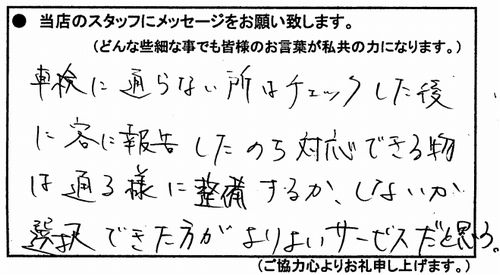 ● 当店のスタッフにメッセージをお願い致します。
(どんな些細な事でも皆様のお言葉が私共の力になります。)
車検に通らない所はチェックした後
に客に報告したのち対応できる物
は通る様に整備するか、しないか
選択できた方がよりよいサービスだと思う。
(ご協力心よりお礼申し上げます。)